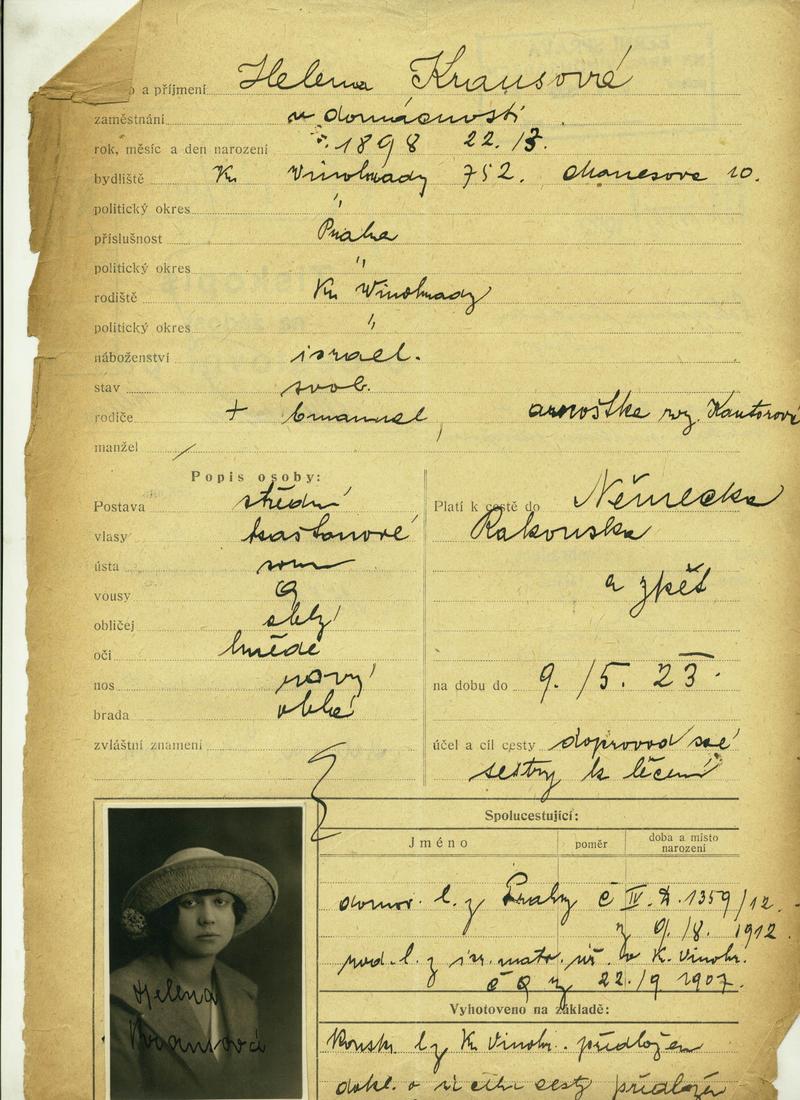 o a příjmení Helena Krausová
zaměstnání v domácnosti
rok, měsíc a den narození 1898 22. /3.
bydliště Kr. Vinohrady 752. 10.
politický okres "
příslušnost Praha
politický okres "
rodiště Kr. Vinohrady
politický okres "
náboženství israel.
stav svob.
rodiče + Emanuel , Arnoštka roz. Kantorová
manžel /
Popis osoby:
Postava střední
vlasy kaštanové
ústa
vousy
obličej
oči hnědé
nos rovný
brada oblá
zvláštní znamení
Platí k cestě do Německa
Rakouska
a zpět
na dobu do 9. /5. 23.
účel a cíl cesty doprovod své
sestry k léčení
Spolucestující:
Jméno poměr doba a místo narození
domov. l. z Prahy č IV. 1359/12.
z 9. /8. 1912.
rod. l. z isr. matr. úř. Kr. Vinohr.
č z 22. /9. 1907.
Vyhotoveno na základě:
Konskr. l. z Kr. Vinohr. předložen
dokl. o účelu cesty předložen
Helena
Krausová